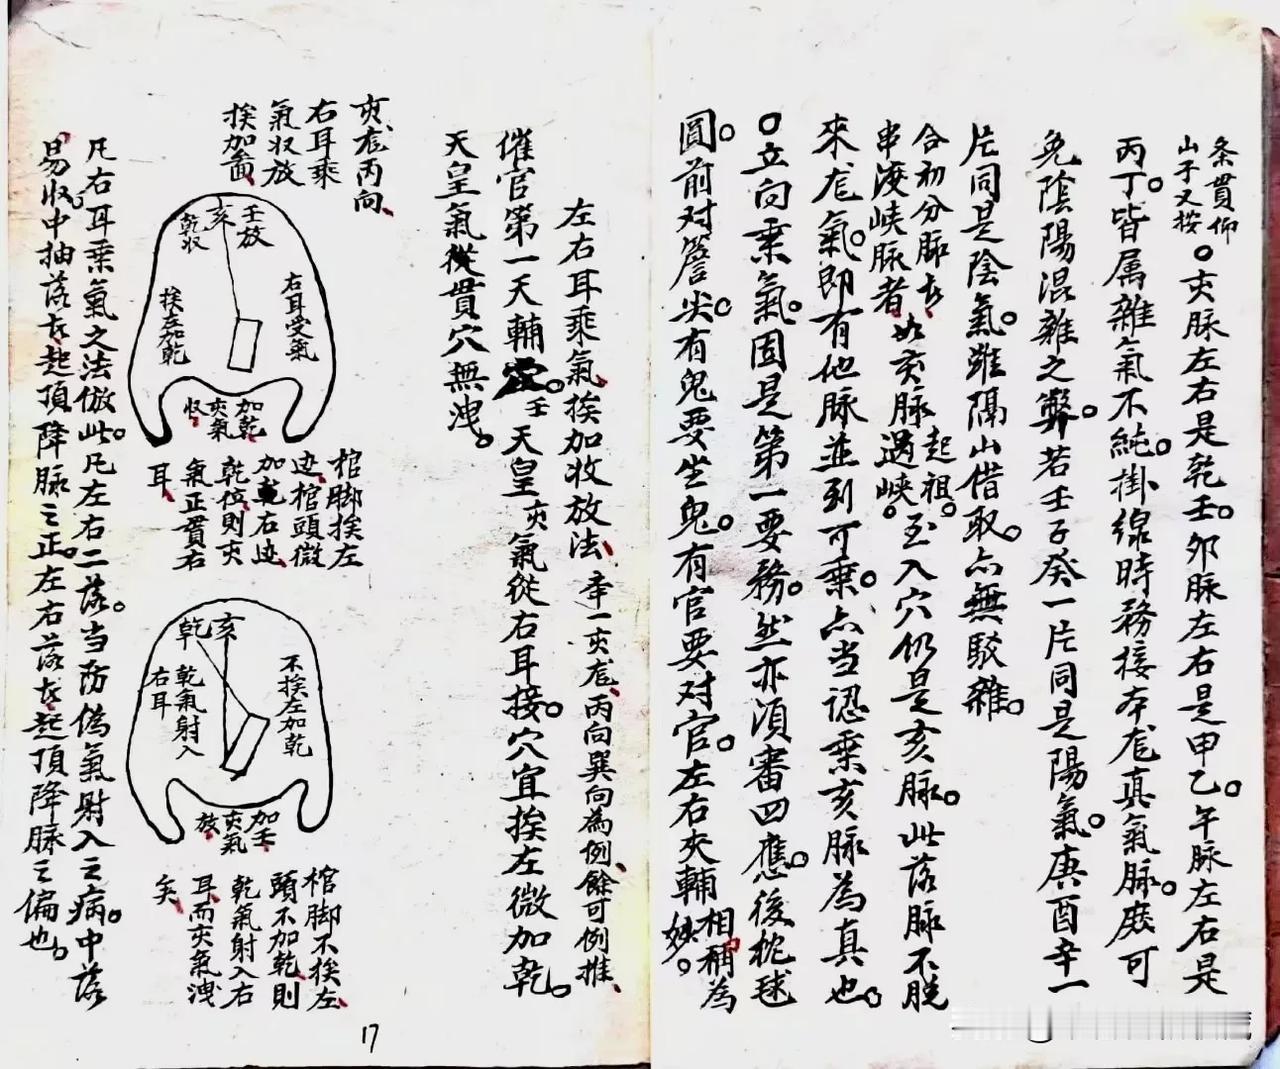 条貫仰
山子又按
。亥脉左右是乾壬。卯脉左右是甲乙。午脉左右是
丙丁。皆属雜氣不純。掛線時務接本龙真氣脉。庶可
免陰陽混雜之弊。若壬子癸一片同是陽氣。庚酉辛一
片同是陰氣。雖隔山借取。亦無駁雜。
合初分脉去、如亥脉起祖。
串渡峡脉者 過峡。至入穴仍是亥脉。此落脉不脱
來龙氣。即有他脉並列可乘。亦当認乘亥脉為真也。
。立向乘氣。固是第一要務。然亦須審四應。後枕毬
圓。前对簷尖。有鬼要坐鬼。有官要对官。左右夾輔相稱為
妙。
左右耳乘氣、挨加收放法、幸一亥龙、丙向巽向為例、餘可例推、
催官第一天輔壬。天皇亥氣從右耳接。穴宜挨左微加乾。
天皇氣從貫穴無洩。
亥龙丙向、
右耳乘
氣收放
挨加啚、
壬放
亥
乾收
右耳受氣
挨左加乾
加乾
亥氣
收
棺脚挨左
边、棺頭微
加乾右边、
乾位、則亥
氣正貫右
耳、
亥
乾
不挨左加乾
乾氣射入
右耳
加壬
亥氣
放
棺脚不挨左、
頭不加乾、則
乾氣射入右
耳、而亥氣洩
矣、
凡右耳乘氣之法倣此。凡左右二落。当防偽氣射入之病。中落
易收。中抽落去、起頂降脉之正。左右落去、起頂降脉之偏也。
17